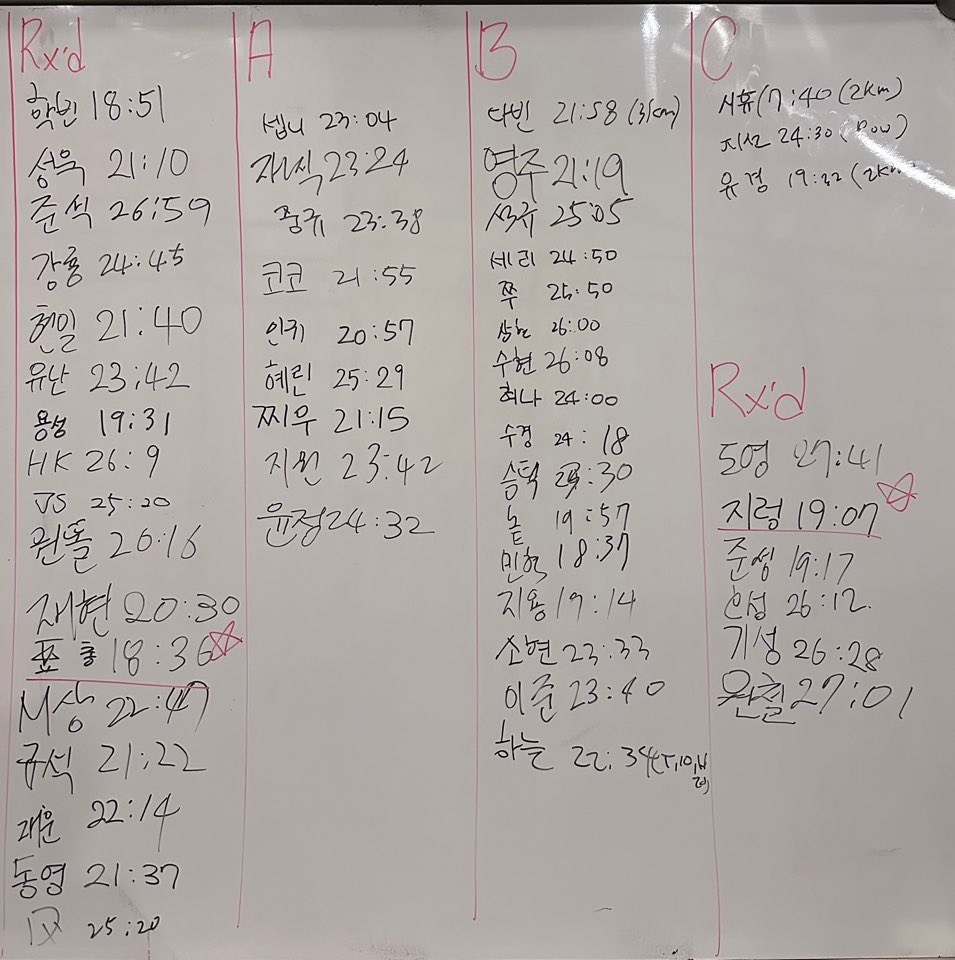 Rx'd
학빈 18:51
성욱 21:10
준석 26:59
강룡 24:45
현일 21:40
유난 23:42
용성 19:31
HK 26:9
JS 25:20
권똘 20:16
재현 20:30
표총 18:36
M상 22:47
규석 21:22
재운 22:14
동영 21:37
25:20
A
셉니 23:04
재식 23:24
중규 23:38
코코 21:55
인귀 20:57
혜린 25:29
찌우 21:15
지원 23:42
윤정 24:32
B
다빈 21:58 (3km)
영주 21:19
석규 25:05
세리 24:50
쭈 25:50
상현 26:00
수현 26:08
허나 24:00
수경 24:18
승턱 :30
놑 19:57
민혁 18:37
지용 19:14
소현 23:33
이준 23:40
하늘 22:34
C
서휴 17:40 (2km)
지선 24:30 (Row)
유경 19:32 (2km)
Rx'd
도영 27:41
지렁 19:07
준성 19:17
인성 26:12.
기성 26:28
완철 27:01